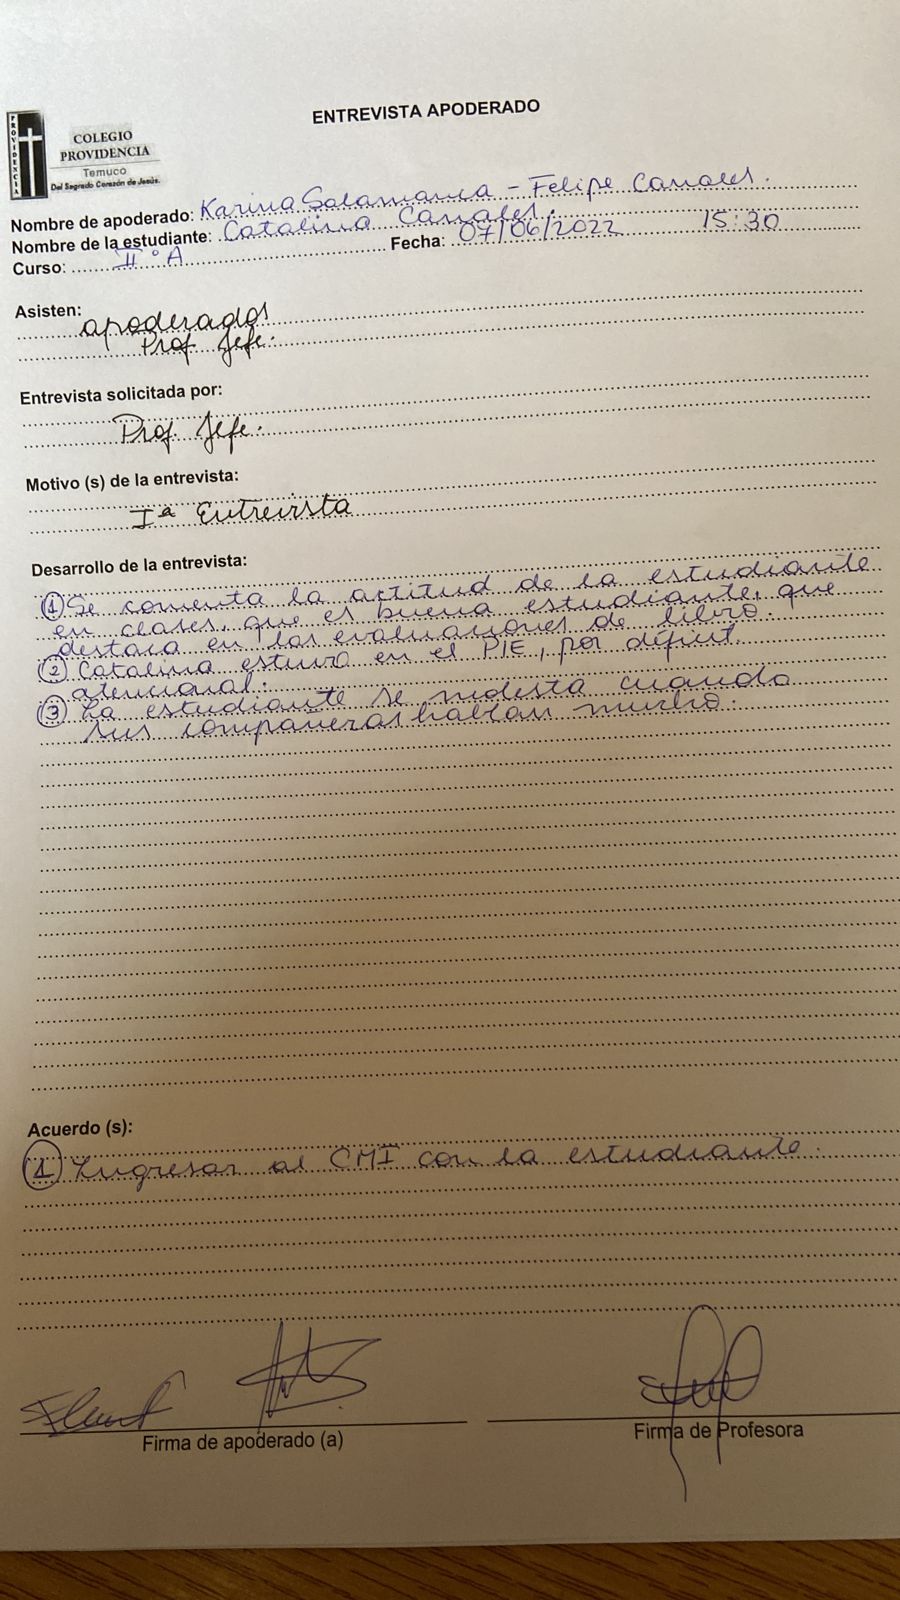 ENTREVISTA APODERADO
PROVIDENCIA
COLEGIO
PROVIDENCIA
Temuco
Del Sagrado Corazón de Jesús.
Nombre de apoderado: Karina Salamanca - Felipe Canales.
Nombre de la estudiante: Catalina Canales.
Curso: II°A Fecha: 07/06/2022 15:30
Asisten:
apoderados
Prof. Jefe.
Entrevista solicitada por:
Prof. Jefe.
Motivo (s) de la entrevista:
Iª Entrevista
Desarrollo de la entrevista:
① Se comenta la actitud de la estudiante
en clases, que es buena estudiante, que
destaca en las evaluaciones de libro.
② Catalina estuvo en el PIE, por déficit
atencional.
③ La estudiante se molesta cuando
sus compañeras hablan mucho.
Acuerdo (s):
① Ingresar al CMI con la estudiante.
Firma de apoderado (a)
Firma de Profesora